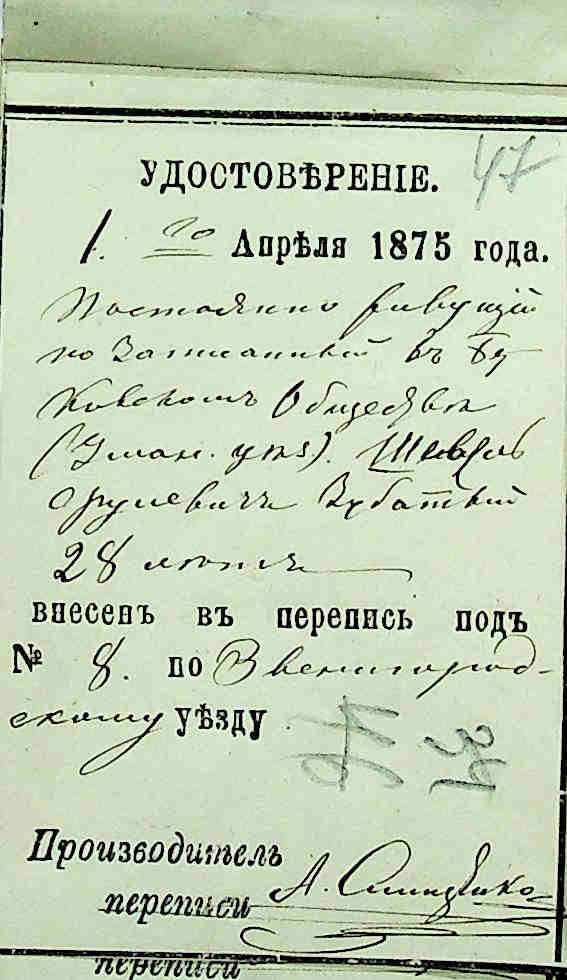 47
УДОСТОВѢРЕНІЕ.
1. го Апрѣля 1875 года.
Постоянно живущій
но Записанный въ Бу
ковскомъ Обществѣ
(Уман. уѣз).
Зубатый
28 лѣтъ
внесенъ въ перепись подъ
№ 8. по Звенигород-
скому уѣзду
34
Производитель
переписи А.
переписи